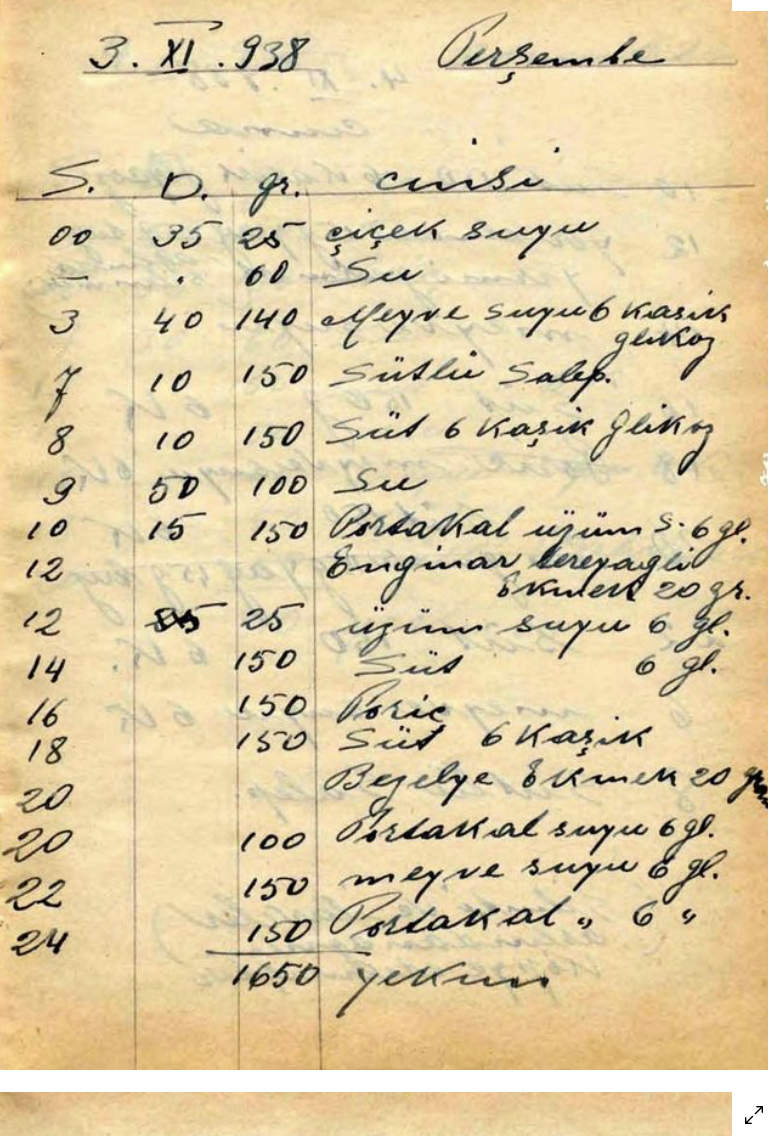 3. XI. 938 Perşembe
S. D. gr. cinsi
00 35 25 çiçek suyu
— . 60 Su
3 40 140 Meyve suyu 6 Kaşık
glikoz
7 10 150 Sütlü Salep.
8 10 150 Süt 6 Kaşik Glikoz
9 50 100 Su
10 15 150 Portakal üzüm S. 6 gl.
12 Enginar tereyagli
Ekmek 20 gr.
12 25 üzüm suyu 6 gl.
14 150 Süt 6 gl.
16 150 Poriç
18 150 Süt 6 Kaşik
20 Bezelye Ekmek 20 gram
20 100 Portakal suyu 6 gl.
22 150 meyve suyu 6 gl.
24 150 Portakal „ 6 „
1650 yekun